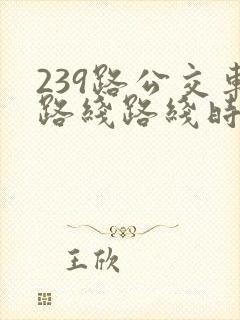 239路公交車
路綫路綫時
王欣